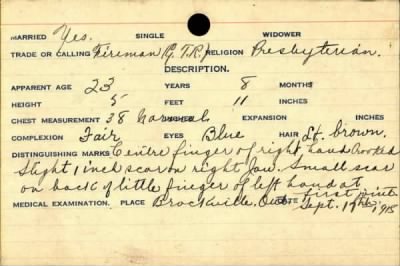 MARRIED Yes. SINGLE WIDOWER
TRADE OR CALLING Fireman (G.T.R.) RELIGION Presbyterian.
DESCRIPTION.
APPARENT AGE 23 YEARS 8 MONTHS
HEIGHT 5 FEET 11 INCHES
CHEST MEASUREMENT 38 Normal EXPANSION INCHES
COMPLEXION Fair EYES Blue HAIR Lt. brown.
DISTINGUISHING MARKS Centre finger of right hand crooked
Slight 1 inch scar on right Jaw. Small scar
on back of little finger of left hand at
first joint
MEDICAL EXAMINATION. PLACE Brockville, Ont. DATE Sept. 17th 1915